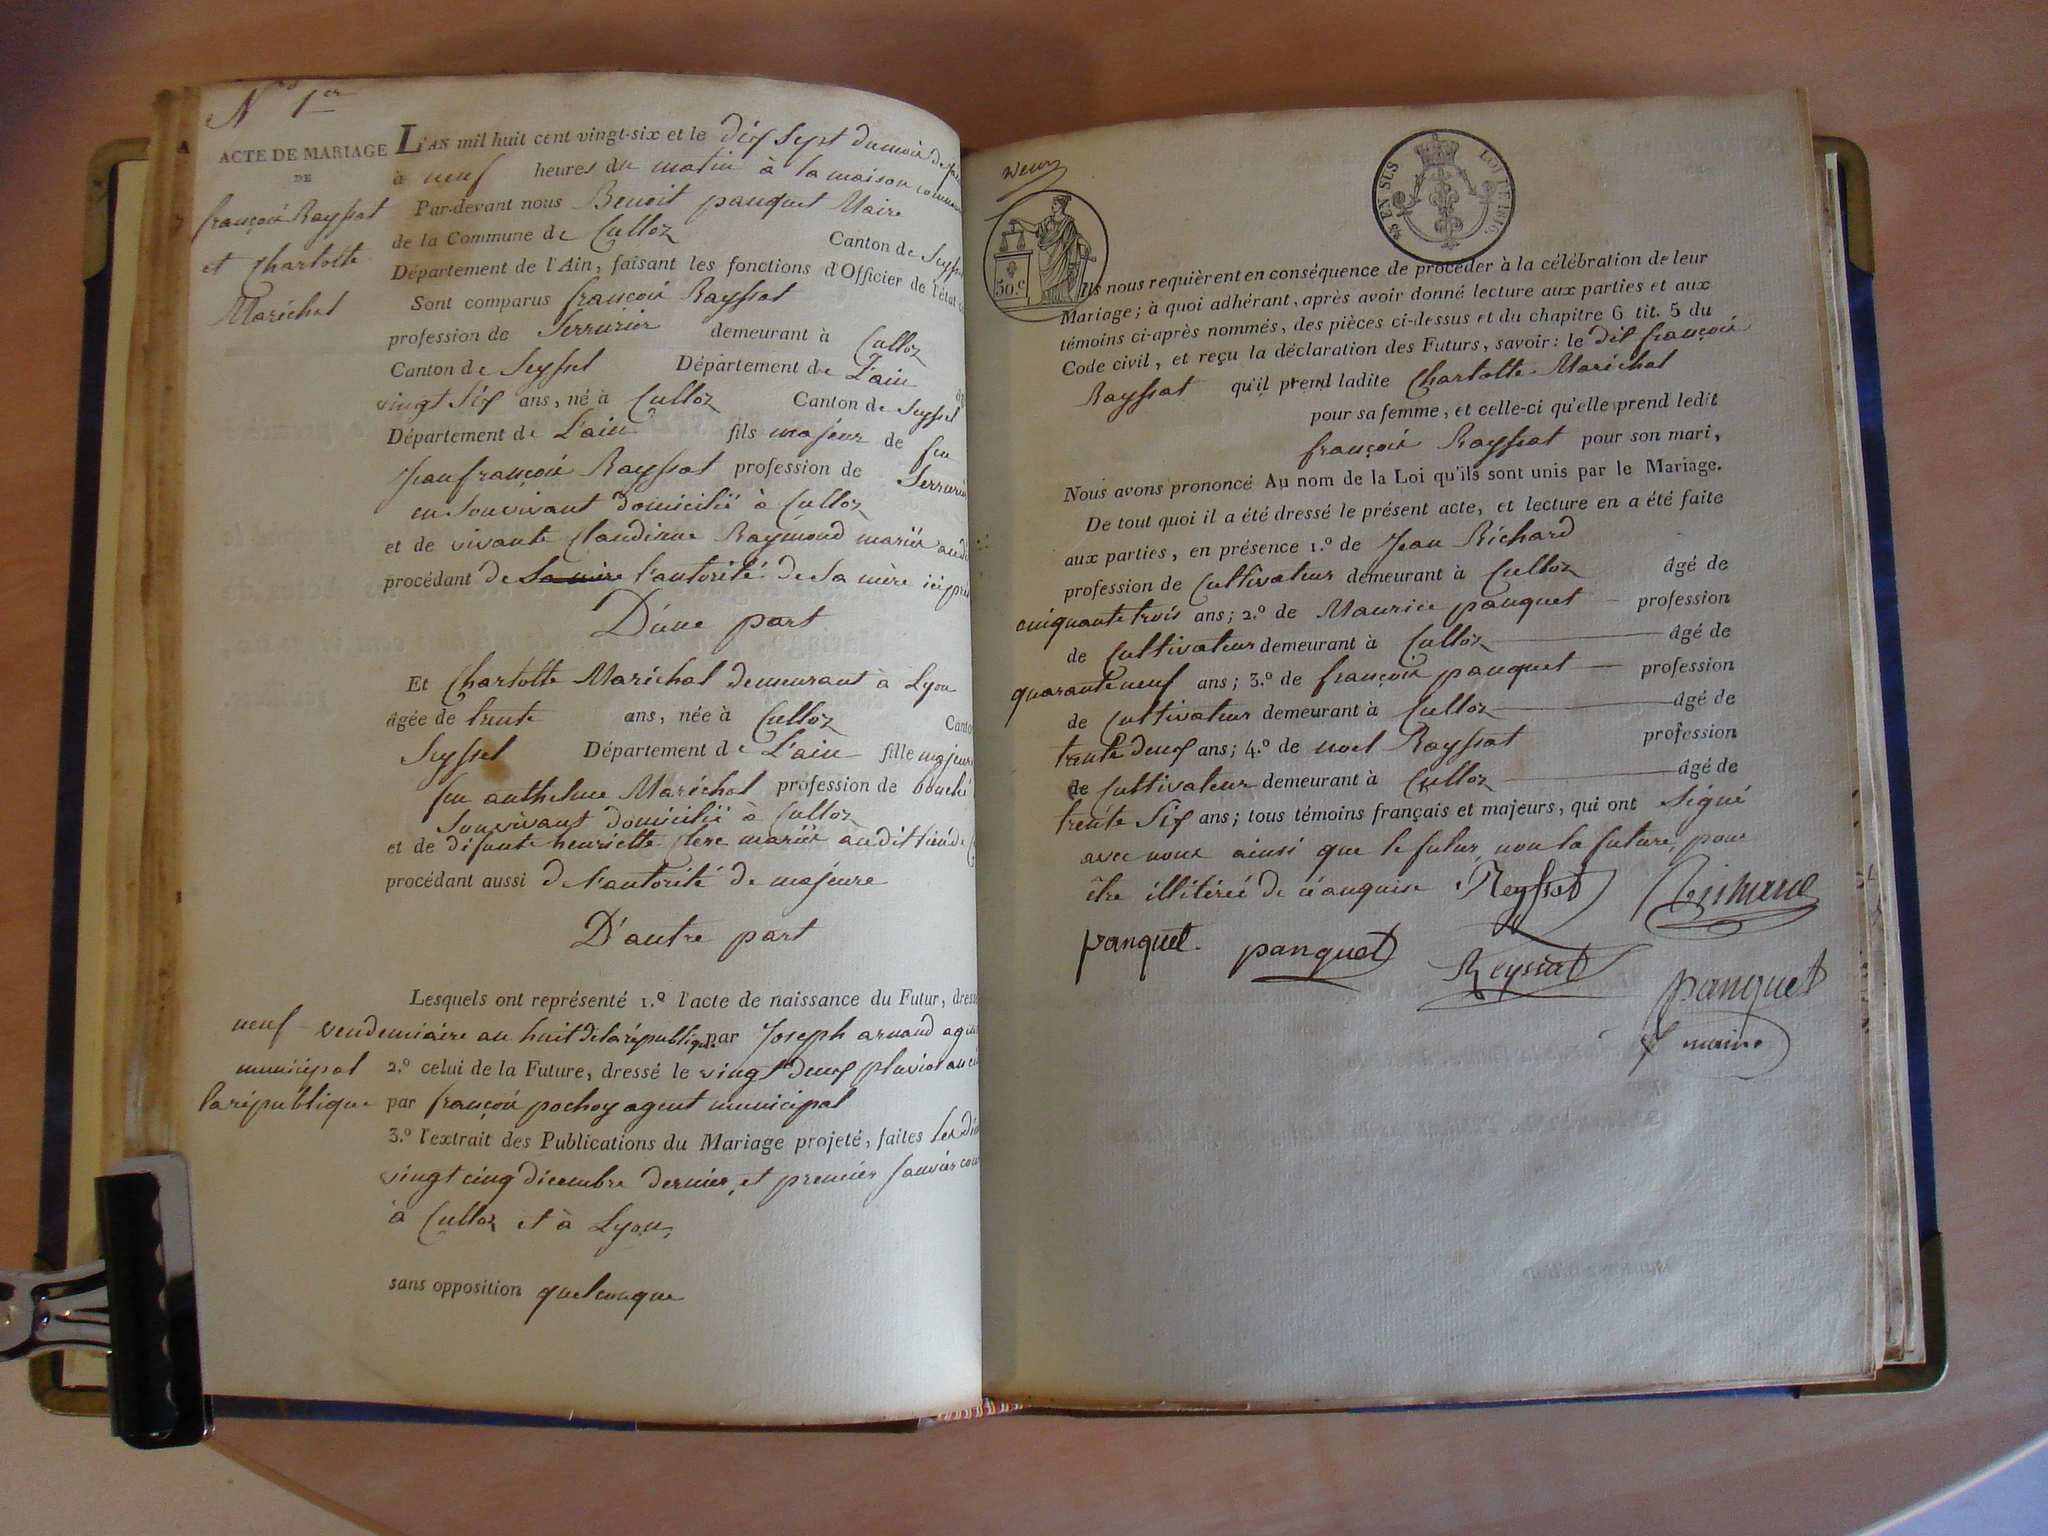 N° 1er
ACTE DE MARIAGE
DE
françois Rayssat
et Charlotte
Maréchal
L'AN mil huit cent vingt-six et le dix sept du mois de
à neuf heures du matin à la maison commune
Par-devant nous Benoit panquet Maire
de la Commune de Culloz Canton de Seyssel
Département de l'Ain, faisant les fonctions d'Officier de l'état
Sont comparus françois Rayssat
profession de Serrurier demeurant à Culloz
Canton de Seyssel Département de L'ain
vingt Six ans, né à Culloz Canton de Seyssel
Département de L'ain fils majeur de feu
Jean françois Rayssat profession de Serrurier
en Son vivant domicilié à Culloz
et de vivante Claudinne Raymond mariés audit
procédant de l'autorité de Sa mère ici
D'une part
Et Charlotte Maréchal demeurant à Lyon
âgée de trente ans, née à Culloz Canton
Seyssel Département de L'ain fille majeure
feu anthelme Maréchal profession de
Son vivant domicilié à Culloz
et de défunte henriette Clere mariés audit lieu de
procédant aussi de l'autorité de majeure
D'autre part
Lesquels ont représenté 1.º l'acte de naissance du Futur, dressé
neuf vendemiaire an huit de la république par Joseph arnaud agent
municipal 2.º celui de la Future, dressé le vingt deux pluviot an
la république par françois pochoy agent municipal
3.º l'extrait des Publications du Mariage projeté, faites les
vingt cinq décembre dernier, et premier Janvier
à Culloz et à Lyon,
sans opposition quelconque
50.C
EN SUS
LOI DE 1816
Ils nous requièrent en conséquence de procéder à la célébration de leur
Mariage; à quoi adhérant, après avoir donné lecture aux parties et aux
témoins ci-après nommés, des pièces ci-dessus et du chapitre 6 tit. 5 du
Code civil, et reçu la déclaration des Futurs, savoir: le dit françois
Rayssat qu'il prend ladite Charlotte Maréchal
pour sa femme, et celle-ci qu'elle prend ledit
françois Rayssat pour son mari,
Nous avons prononcé Au nom de la Loi qu'ils sont unis par le Mariage.
De tout quoi il a été dressé le présent acte, et lecture en a été faite
aux parties, en présence 1.º de Jean Richard
profession de Cultivateur demeurant à Culloz âgé de
cinquante trois ans; 2.º de Maurice panquet profession
de Cultivateur demeurant à Culloz âgé de
quarante neuf ans; 3.º de françois panquet profession
de Cultivateur demeurant à Culloz âgé de
trente deux ans; 4.º de noel Rayssat profession
de Cultivateur demeurant à Culloz âgé de
trente Six ans; tous témoins français et majeurs, qui ont Signé
avec nous ainsi que le futur, non la future, pour
être illitérée de ce enquise Reyssat Richard
panquet. panquet Reyssat panquet
maire